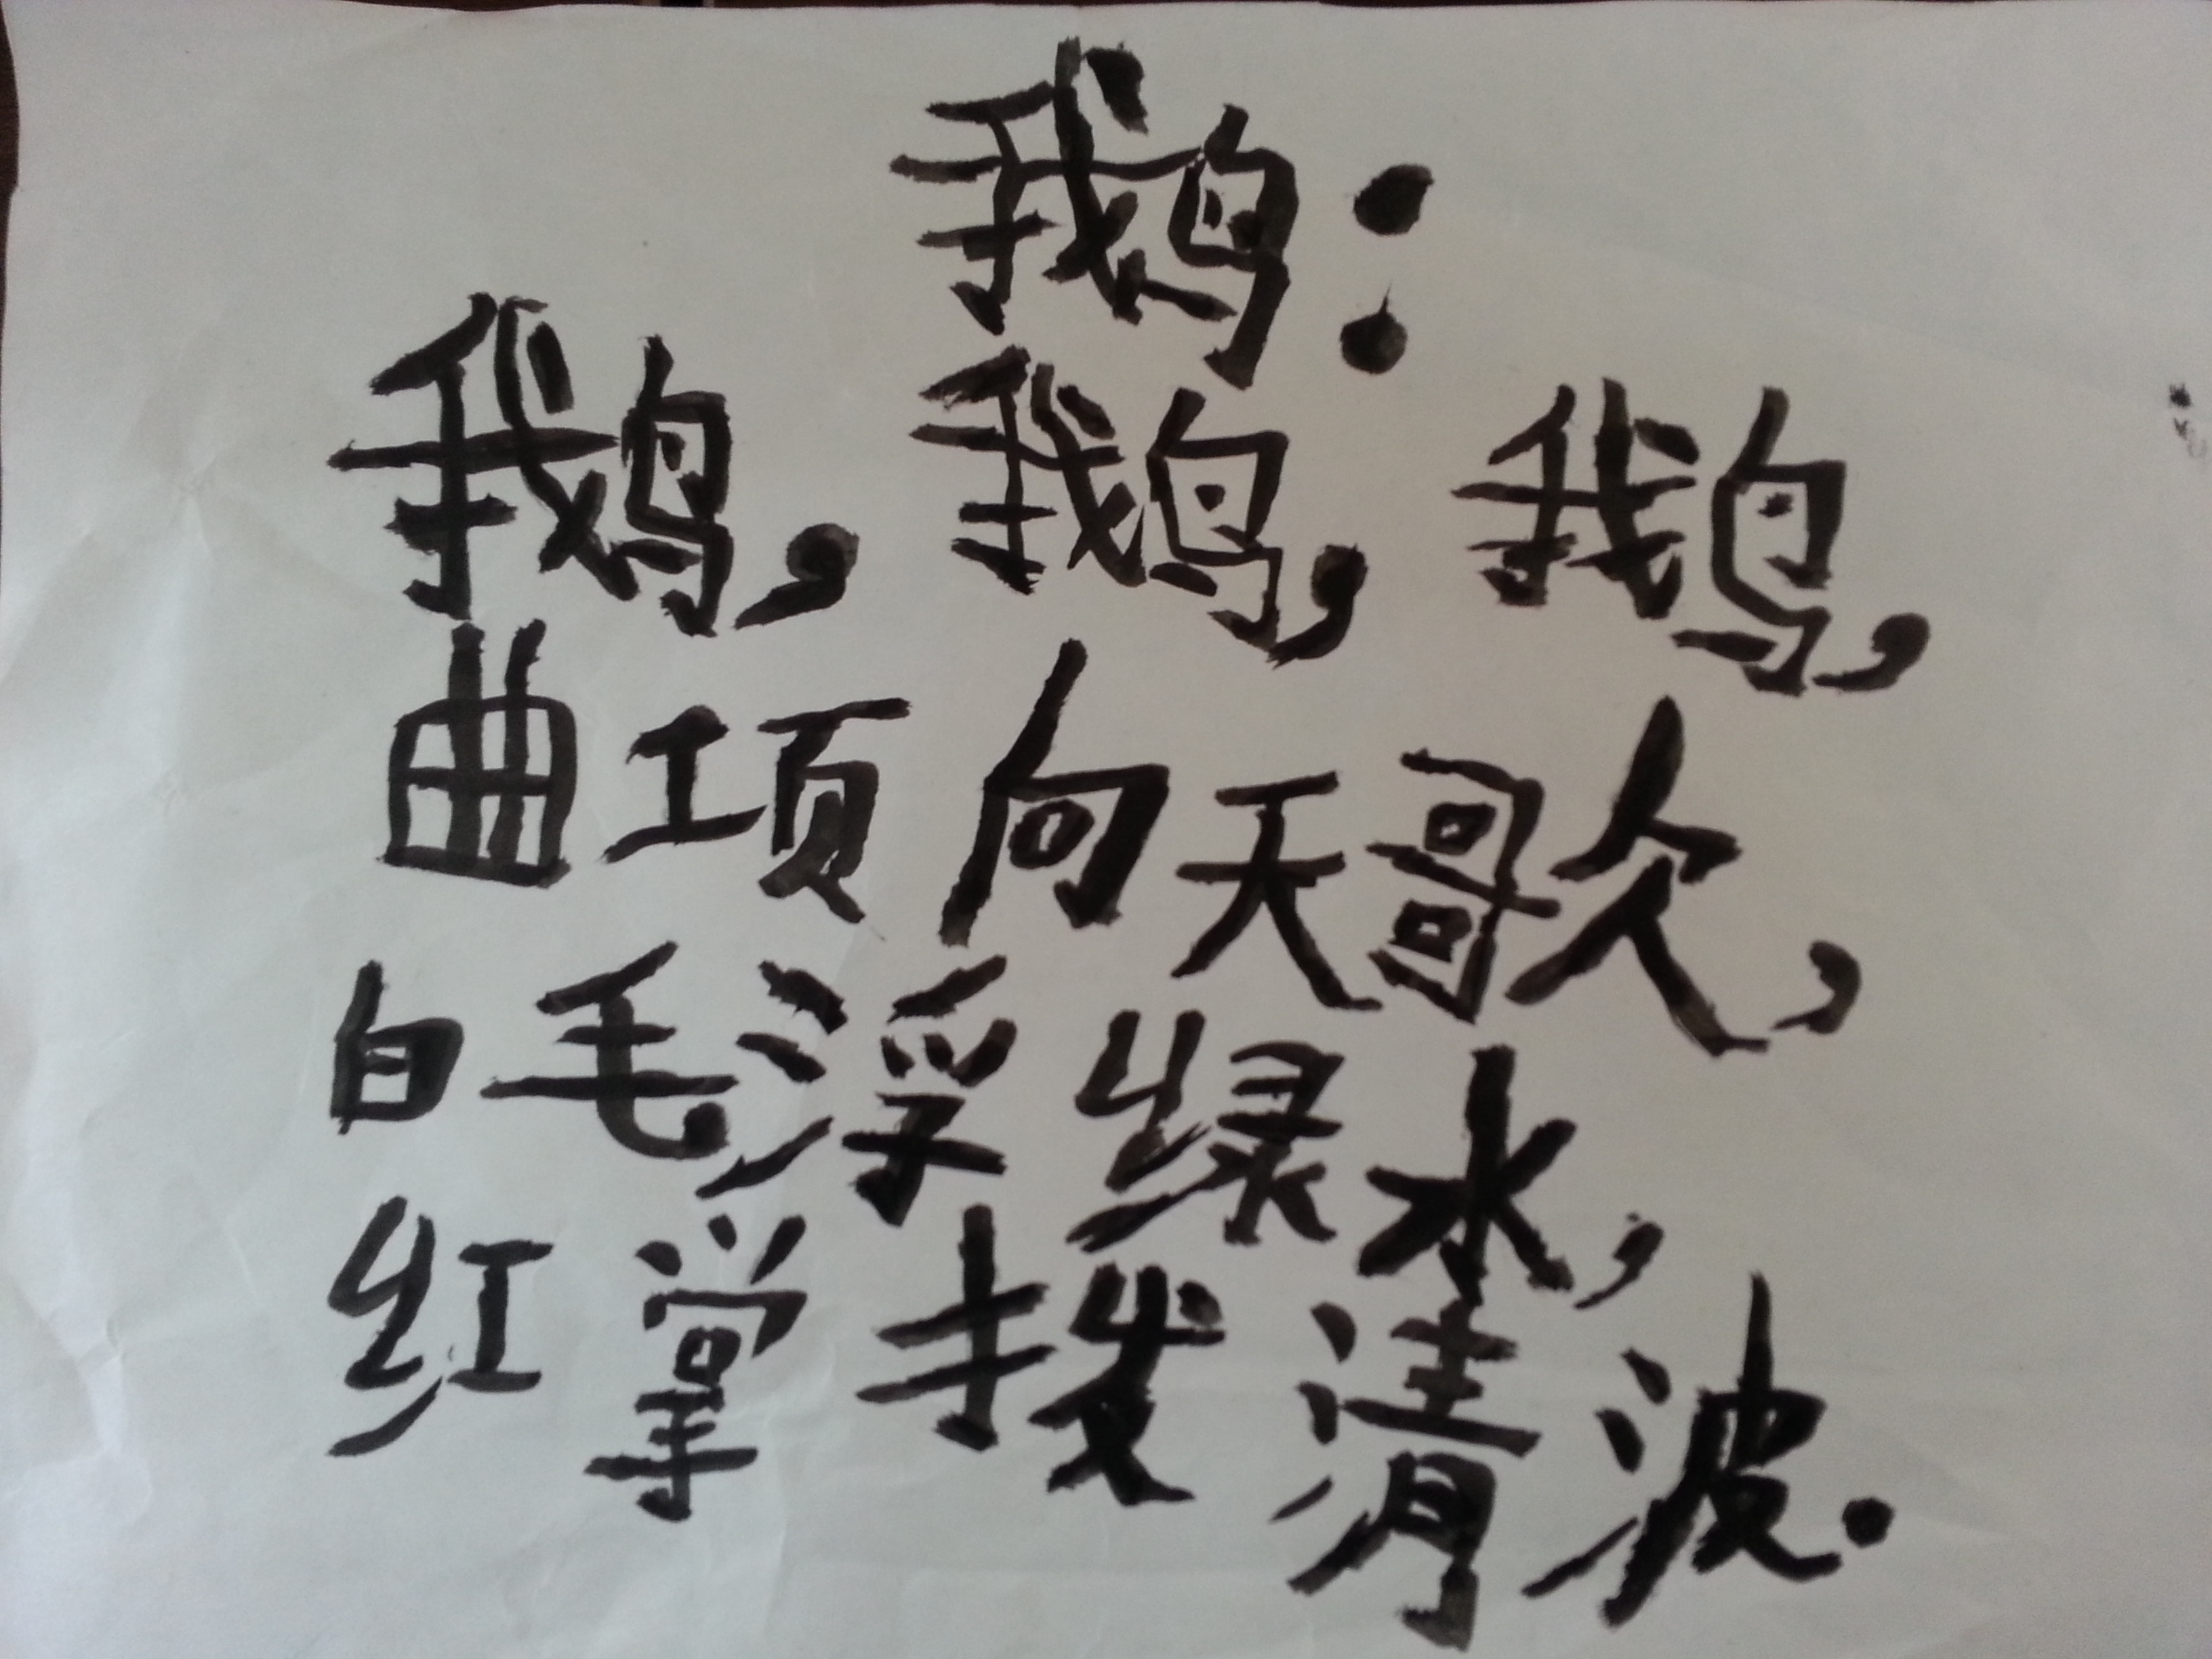 鹅：
鹅，鹅，鹅，
曲项向天歌，
白毛浮绿水，
红掌拨清波.